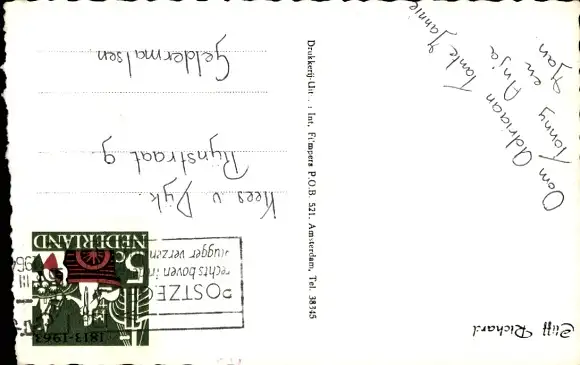 Cliff Richard
Oom Adriaan Tante Jannie
Tonny Anja
en
Jan
Drukkerij-Uit
Int. Filmpers P.O.B. 521, Amsterdam, Tel. 38345
1813-1963
5 C
NEDERLAND
POSTZE
rechts boven in
vlugger verzen
III
1964
Kees v Dijk.
Rijnstraat 9
Geldermalsen